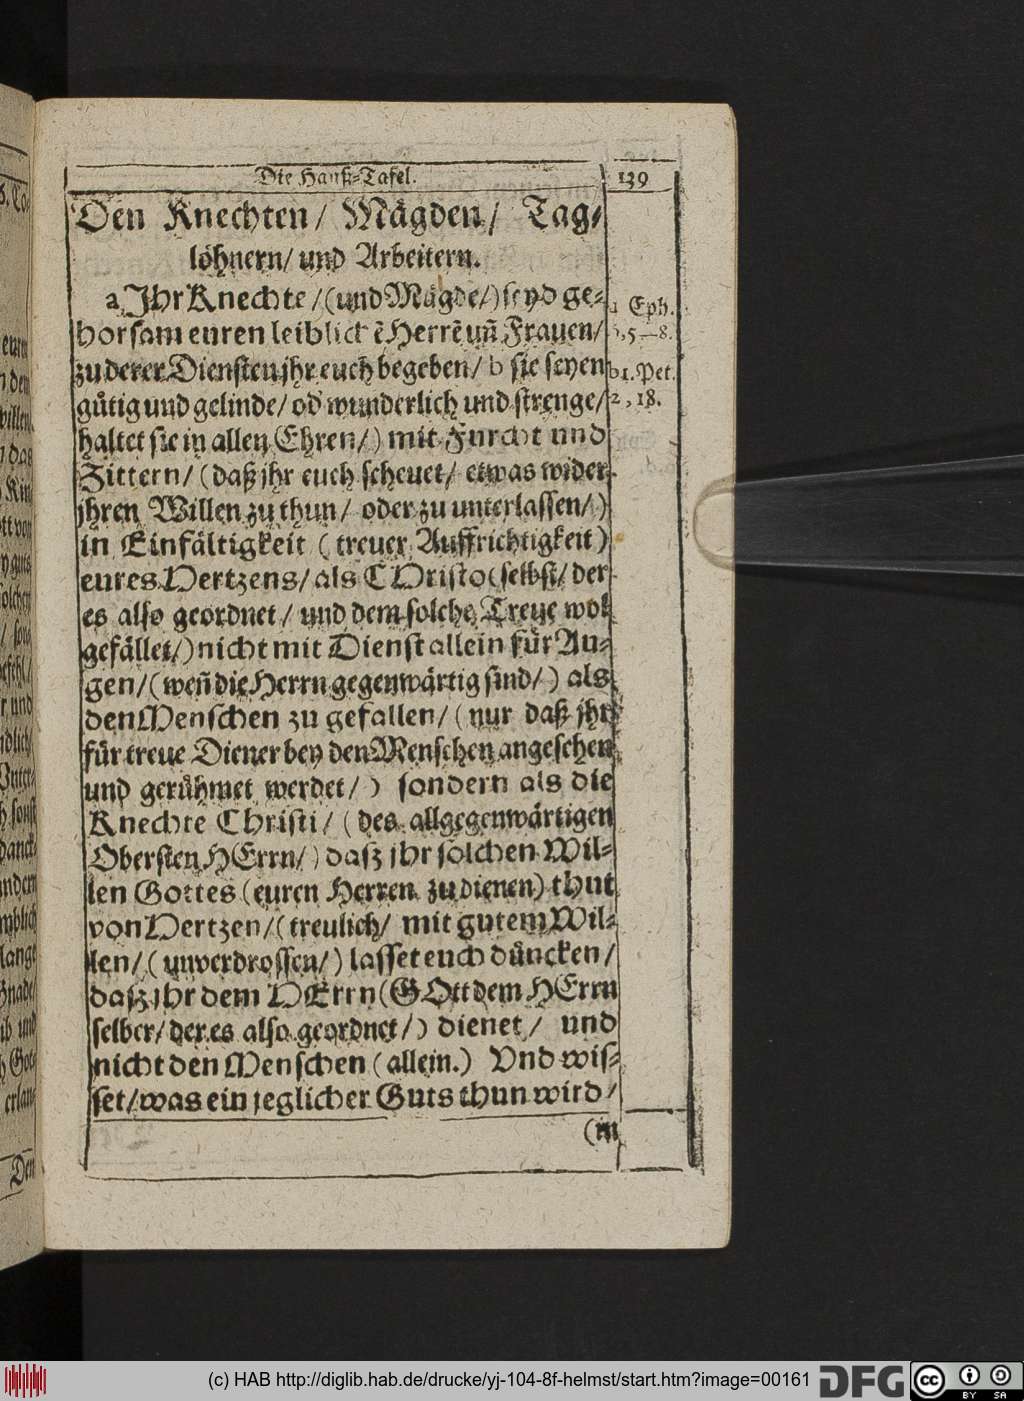 Die Hauß-Tafel. 139
Den Knechten/ Mägden/ Tag-
löhnern/ und Arbeitern.
a Ihr Knechte/(und Mägde/) seyd ge-
horsam euren leiblichē Herrē uñ Frauen/
zu derer Diensten jhr euch begeben/ b sie seyen
gütig und gelinde/ od' wunderlich und strenge/
haltet sie in allen Ehren/) mit Furcht und
Zittern/ (daß jhr euch scheuet/ etwas wider
jhren Willen zu thun/ oder zu unterlassen/)
in Einfältigkeit (treuer Auffrichtigkeit)
eures Hertzens/ als CHristo (selbst/ der
es also geordnet/ und dem solche Treue wol
gefället/) nicht mit Dienst allein für Au-
gen/(weñ die Herrn gegenwärtig sind/) als
den Menschen zu gefallen/ (nur daß jhr
für treue Diener bey den Menschen angesehen
und gerühmet werdet/) sondern als die
Knechte Christi/ (des allgegenwärtigen
Obersten HErrn/) daß ihr solchen Wil-
len Gottes (euren Herren zu dienen) thut
von Hertzen/(treulich/ mit gutem Wil-
len/ (unverdrossen/) lasset euch düncken/
daß ihr dem HErrn (GOtt dem HErrn
selber/ der es also geordnet/) dienet/ und
nicht den Menschen (allein.) Und wis-
set/ was ein jeglicher Guts thun wird/
(in
a Eph.
5—8.
b 1. Pet.
2, 18.
(c) HAB http://diglib.hab.de/drucke/yj-104-8f-helmst/start.htm?image=00161
DFG
cc
BY SA